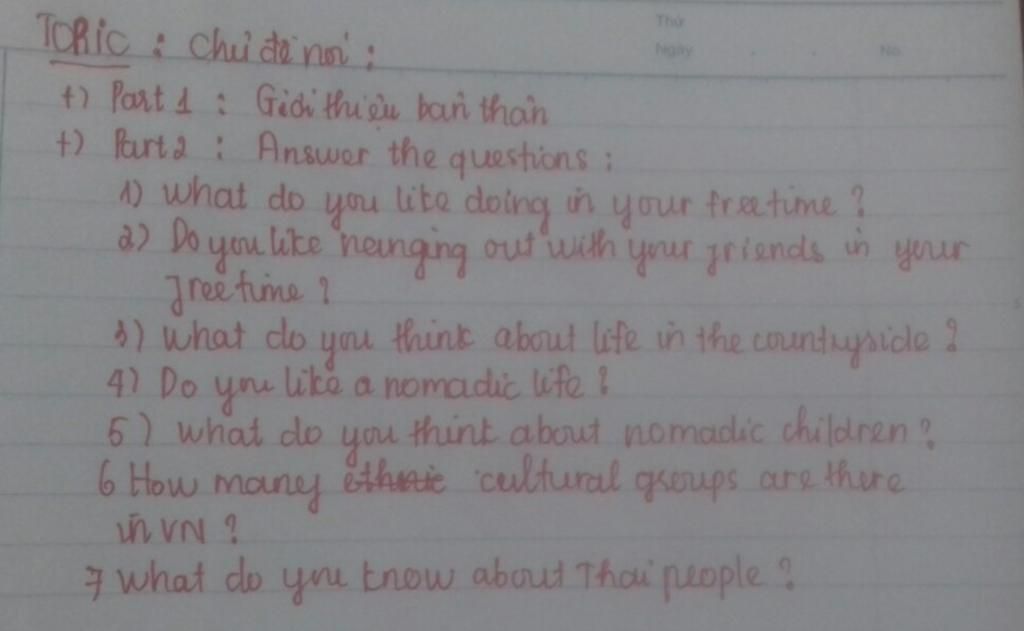 Thứ
Ngày No
TOPIC : Chủ đề nói :
+) Part 1 : Giới thiệu bản thân
+) Part 2 : Answer the questions :
1) What do you like doing in your freetime ?
2) Do you like hanging out with your friends in your
freetime ?
3) What do you think about life in the countryside ?
4) Do you like a nomadic life ?
5) What do you think about nomadic children ?
6 How many ethnic cultural groups are there
in VN ?
7 What do you know about Thai people ?